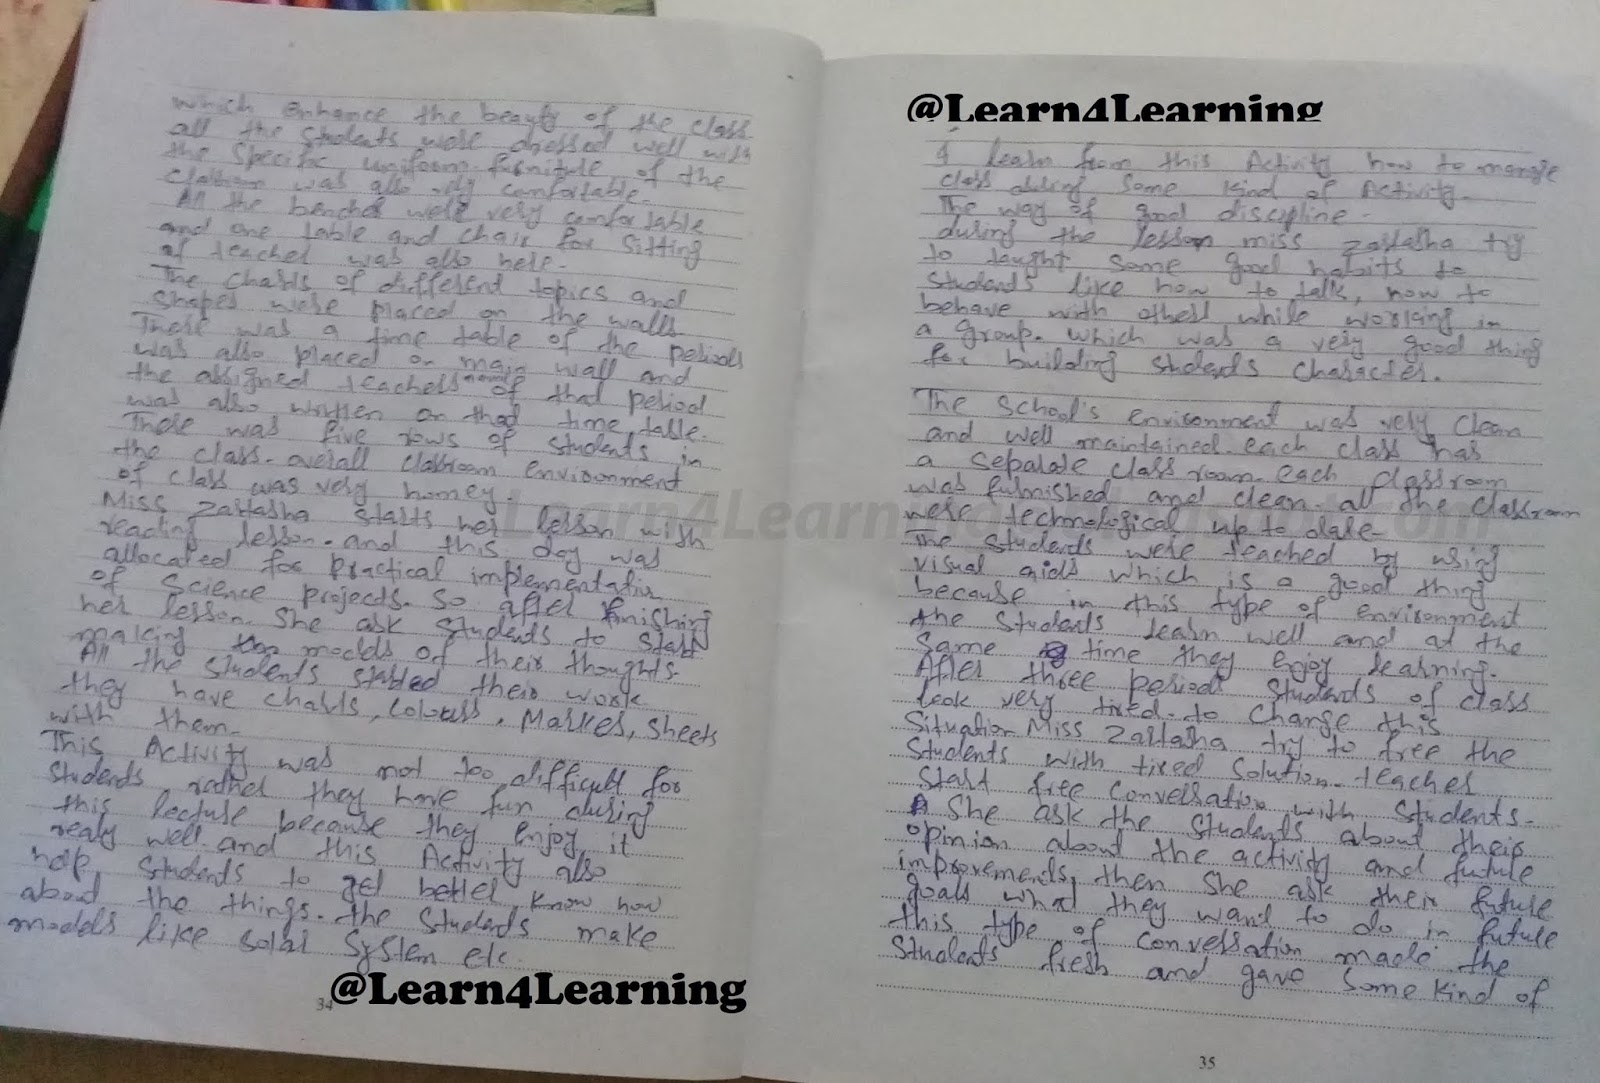 which enhance the beauty of the class
all the students were dressed well with
the specific uniform. furniture of the
classroom was also very comfortable.
All the benches were very comfortable
and one table and chair for sitting
of teacher was also here.
The charts of different topics and
shapes were placed on the walls
There was a time table of the periods
was also placed on main wall and
the assigned teachers name of that period
was also written on that time table.
There was five rows of students in
the class. overall classroom environment
of class was very homey.
Miss Zartasha starts her lesson with
reading lesson. and this day was
allocated for practical implementation
of science projects. so after finishing
her lesson. She ask students to start
making models of their thoughts.
All the students started their work
they have charts, colours, Markes, sheets
with them.
This Activity was not too difficult for
students rather they have fun during
this lecture because they enjoy it
realy well. and this Activity also
help students to get better know how
about the things. the students make
models like solar system etc.
34
@Learn4Learning
@Learn4Learning
I learn from this Activity how to manage
class during some kind of Activity.
The way of good discipline.
during the lesson miss zartasha try
to taught some good habits to
students like how to talk, how to
behave with others while working in
a group. which was a very good thing
for building students character.
The school's environment was very clean
and well maintained. each class has
a separate class room. each classroom
was furnished and clean. all the classroom
were technological up to date.
The students were teached by using
visual aids which is a good thing
because in this type of environment
the students learn well and at the
same time they enjoy learning.
After three periods students of class
look very tired. to change this
situation Miss Zartasha try to free the
students with tired solution. teacher
start free conversation with students.
She ask the students about their
opinion about the activity and future
improvements, then she ask their future
goals what they want to do in future
this type of conversation made the
students fresh and gave some kind of
35